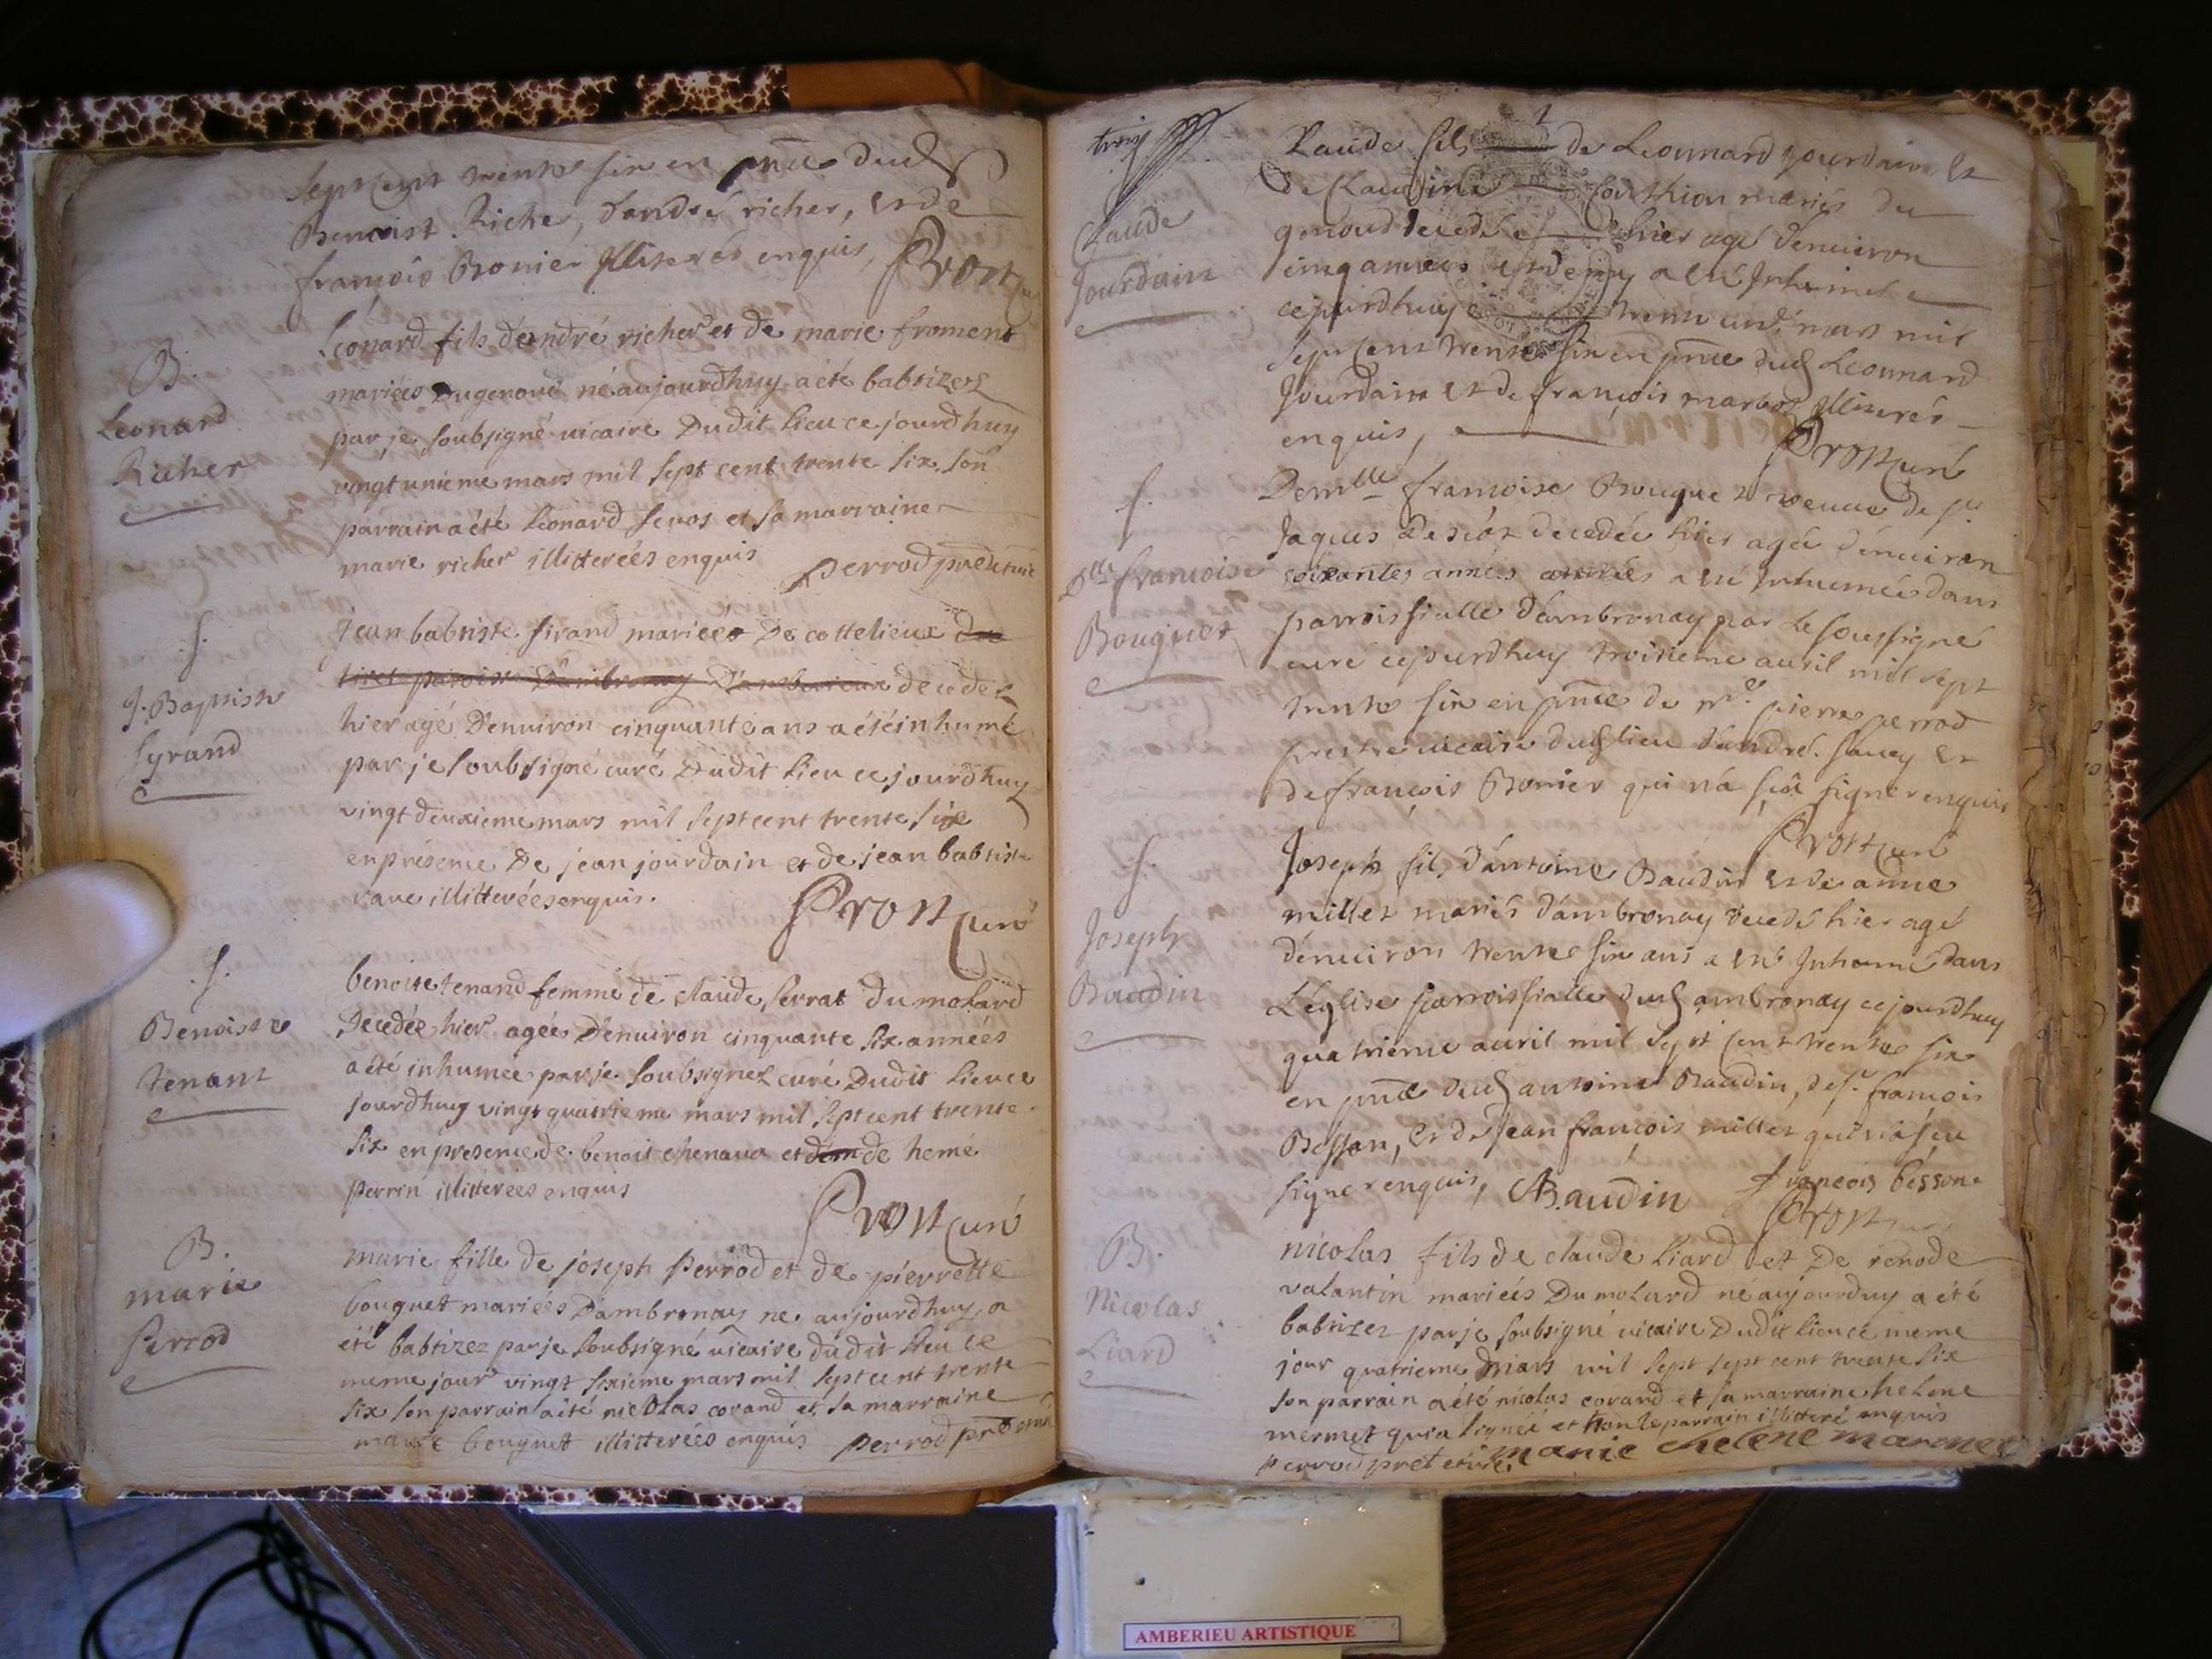 sept cent trente six en pnce dud
Benoist Richer, d'andré richer, et de
françois Bonier illiterés enquis, Pron
B.
Leonard
Richer
Léonard fils d'andré richer et de marie froment
mariées Dugenoud né aujourdhuy a été babtizez
par je soubsigné vicaire Dudit lieu ce jourdhuy
vingt unieme mars mil sept cent trente six, son
parrain a été Léonard et sa marraine
marie richer illitterées enquis perrod
S.
J. Baptiste
Syrand
Jean babtiste sirand mariées De cottelieux
decedez
hier agé D'enuiron cinquante ans a été inhumé
par je soubsigné curé Dudit lieu ce jourdhuy
vingt deuxieme mars mil sept cent trente six
en présence De jean jourdain et de jean babtiste
illitterées enquis.
Pron curé
S.
Benoiste
tenant
benoite tenand femme de claude serrat du molard
Decedée hier agée D'enuiron cinquante six années
a été inhumée par je soubsignez curé Dudit lieu ce
jourdhuy vingt quatrieme mars mil sept cent trente
six en presence de benoit chenaua et de hemé
perrin illitterées enquis
Pron curé
B.
marie
Perrod
marie fille de joseph Perrod et de pierrette
bouguet mariées D'ambronay ne aujourdhuy, a
été babtizez par je soubsigné vicaire dudit lieu ce
meme jour vingt sixieme mars mil sept cent trente
six son parrain a été nicolas corand et sa marraine
bouguet illitterées enquis perrod
trois
Claude
Jourdain
Claude fils de Leonnard jourdain et
de Claudine mariés du
genoud decedé hier agé denuiron
cinq années et demy a eté Inhumé
cejourdhuy trente un mars mil
sept cent trente six en pnce dud Leonnard
Jourdain et de françois illiterés
enquis,
Pron curé
S.
Dlle francoise
Bouguet
Demlle francoise Bouguet veuue de sr
Jaques decedée hier agée dénuiron
soixantes années a eté inhumée dans
parroissialle d'ambronay par Le soussigné
curé cejourdhuy troisieme auril mil sept
trente six en pnce de mre pierre perrod
prestre uicaire dud lieu d'andré et
de françois Bonier qui n'a sçu signer enquis
Pron curé
S.
Joseph
Baudin
Joseph fils d'antoine Baudin et de anne
millet mariés d'ambronay decedé hier agé
dénuiron trente six ans a eté Inhumé dans
L'église parroissialle dud ambronay cejourdhuy
quatrieme auril mil sept cent trente six
en pnce dud antoine Baudin, de sr françois
Besson, et de Jean françois millet qui n'a sçeu
signer enquis, A Baudin francois bésson
Pron
B.
Nicolas
Liard
nicolas fils de claude Liard et De
valantin mariées Du molard né aujourduy a été
babtizez par je soubsigné uicaire Dudit lieu ce meme
jour quatrieme mars mil sept sept cent trente six
son parrain a été nicolas corand et sa marraine helene
mermet qui a signéé et non le parrain illitteré enquis
perrod marie helene marmet
AMBERIEU ARTISTIQUE